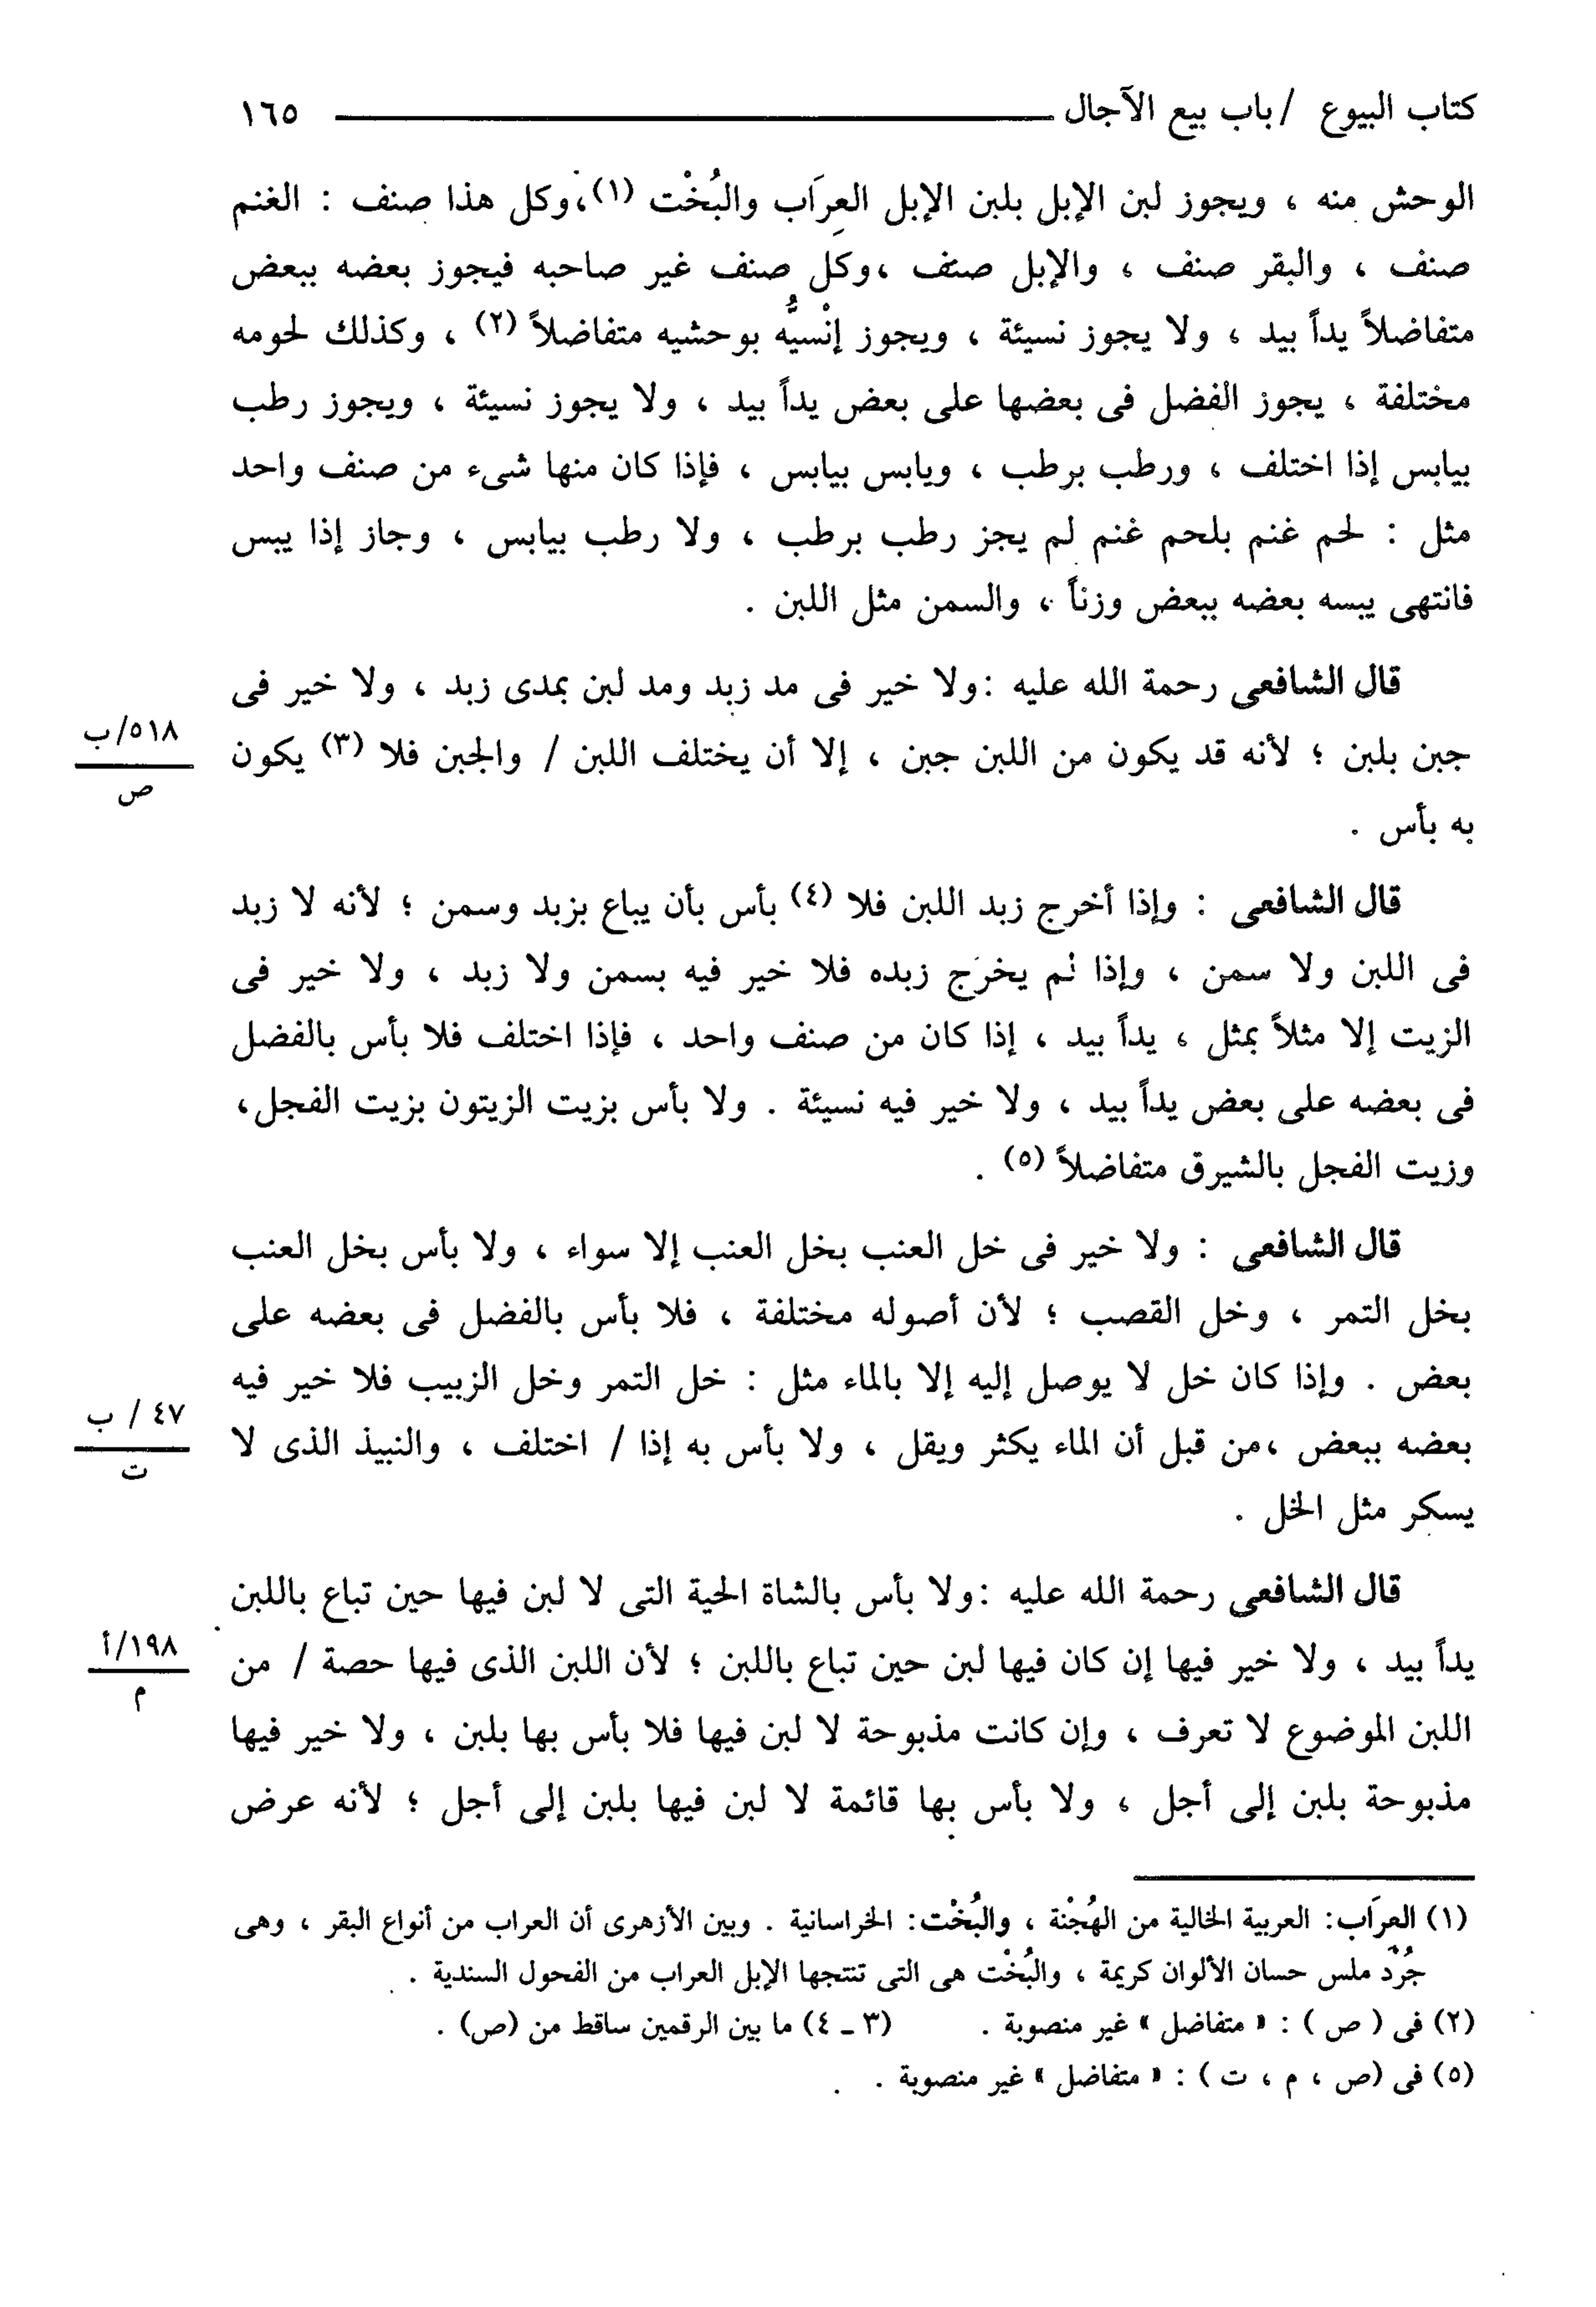 كتاب البيوع / باب بيع الآجال ١٦٥
الوحش منه ، ويجوز لبن الإبل بلبن الإبل العِرَاب والبُخْت (١)،وكل هذا صنف : الغنم
صنف ، والبقر صنف ، والإبل صنف ،وكل صنف غير صاحبه فيجوز بعضه ببعض
متفاضلاً يداً بيد ، ولا يجوز نسيئة ، ويجوز إنْسيُّه بوحشيه متفاضلاً (٢) ، وكذلك لحومه
مختلفة ، يجوز الفضل فى بعضها على بعض يداً بيد ، ولا يجوز نسيئة ، ويجوز رطب
بيابس إذا اختلف ، ورطب برطب ، ويابس بيابس ، فإذا كان منها شىء من صنف واحد
مثل : لحم غنم بلحم غنم لم يجز رطب برطب ، ولا رطب بيابس ، وجاز إذا يبس
فانتهى يبسه بعضه ببعض وزناً ، والسمن مثل اللبن .
قال الشافعى رحمة الله عليه :ولا خير فى مد زبد ومد لبن بمدى زبد ، ولا خير فى
جبن بلبن ؛ لأنه قد يكون من اللبن جبن ، إلا أن يختلف اللبن / والجبن فلا (٣) يكون
٥١٨/ب
ص
به بأس .
قال الشافعى : وإذا أخرج زبد اللبن فلا (٤) بأس بأن يباع بزبد وسمن ؛ لأنه لا زبد
فى اللبن ولا سمن ، وإذا لم يخرج زبده فلا خير فيه بسمن ولا زبد ، ولا خير فى
الزيت إلا مثلاً بمثل ، يداً بيد ، إذا كان من صنف واحد ، فإذا اختلف فلا بأس بالفضل
فى بعضه على بعض يداً بيد ، ولا خير فيه نسيئة . ولا بأس بزيت الزيتون بزيت الفجل،
وزيت الفجل بالشيرق متفاضلاً (٥) .
قال الشافعى : ولا خير فى خل العنب بخل العنب إلا سواء ، ولا بأس بخل العنب
بخل التمر ، وخل القصب ؛ لأن أصوله مختلفة ، فلا بأس بالفضل فى بعضه على
بعض . وإذا كان خل لا يوصل إليه إلا بالماء مثل : خل التمر وخل الزبيب فلا خير فيه
٤٧ / ب
ت
بعضه ببعض ،من قبل أن الماء يكثر ويقل ، ولا بأس به إذا / اختلف ، والنبيذ الذى لا
يسكر مثل الخل .
قال الشافعى رحمة الله عليه :ولا بأس بالشاة الحية التى لا لبن فيها حين تباع باللبن
يداً بيد ، ولا خير فيها إن كان فيها لبن حين تباع باللبن ؛ لأن اللبن الذى فيها حصة / من
١٩٨/أ
م
اللبن الموضوع لا تعرف ، وإن كانت مذبوحة لا لبن فيها فلا بأس بها بلبن ، ولا خير فيها
مذبوحة بلبن إلى أجل ، ولا بأس بها قائمة لا لبن فيها بلبن إلى أجل ؛ لأنه عرض
(١) العِرَاب: العربية الخالية من الهُجْنة ، والبُخْت: الخراسانية . وبين الأزهرى أن العراب من أنواع البقر ، وهى
جُرْد ملس حسان الألوان كريمة ، والبُخْت هى التى تنتجها الإبل العراب من الفحول السندية .
(٢) فى ( ص ) : « متفاضل » غير منصوبة . (٣ ـ ٤) ما بين الرقمين ساقط من (ص) .
(٥) فى (ص ، م ، ت ) : « متفاضل » غير منصوبة .